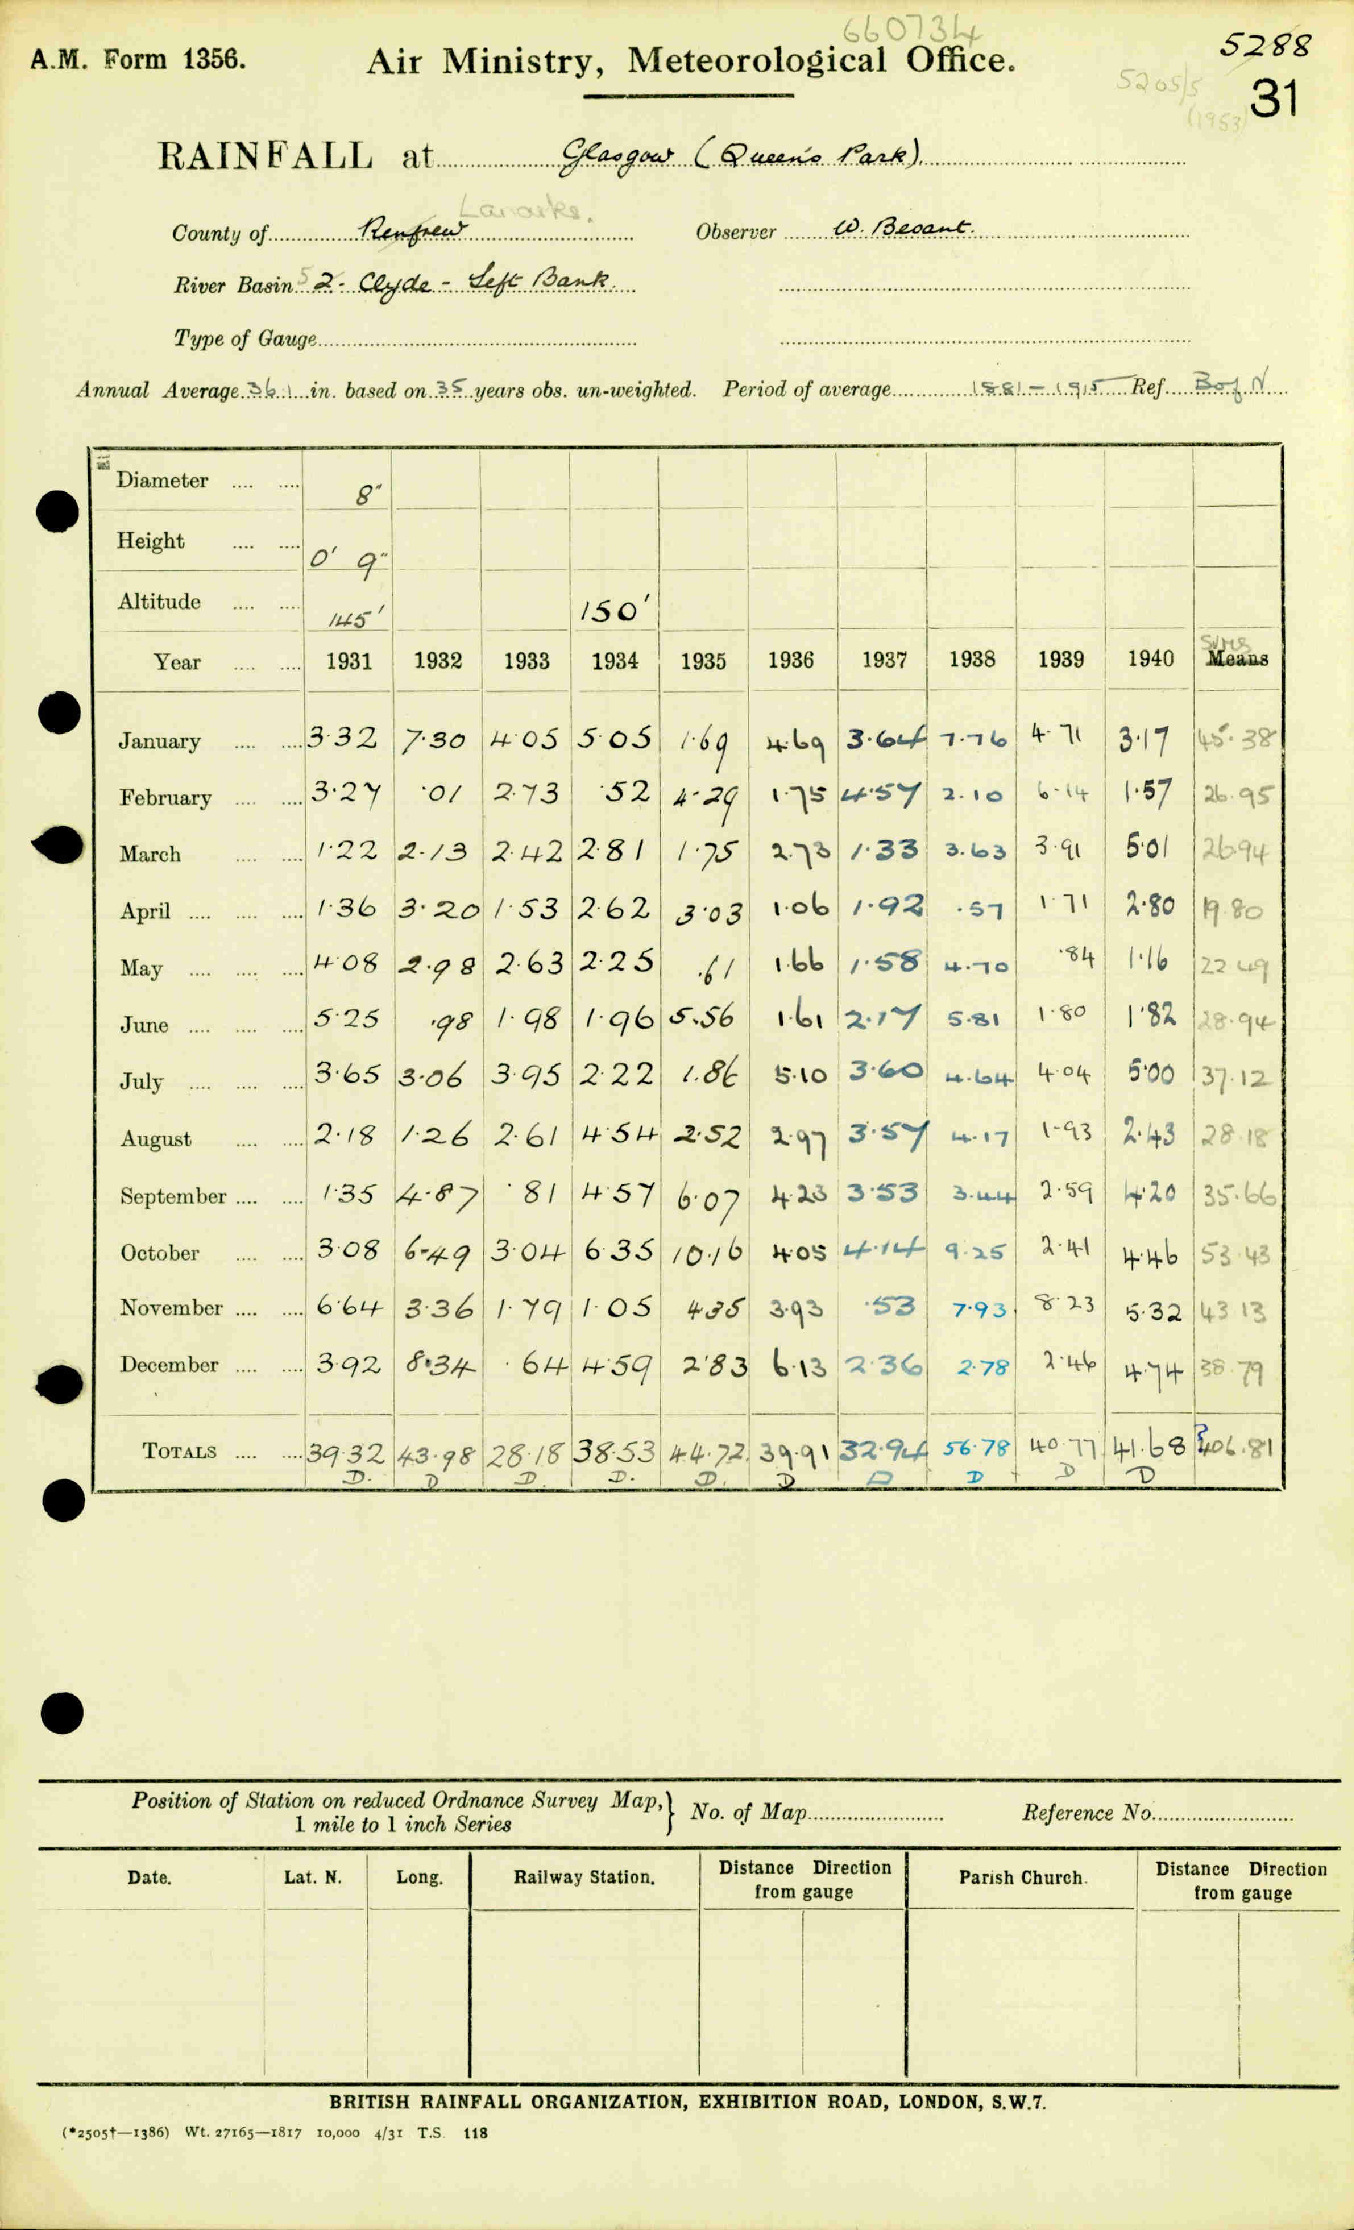 660734
A.M. Form 1356. Air Ministry, Meteorological Office. 5288
5205/5 31
(1953)
RAINFALL at Glasgow (Queen's Park).
Lanarks.
County of Renfrew Observer W. Besant.
River Basin 5 2 - Clyde - Left Bank.
Type of Gauge
Annual Average 36.1 in. based on 35 years obs. un-weighted. Period of average 1881-1915 Ref. B of N
Diameter .... .... 8"
Height .... .... 0' 9"
Altitude .... .... 145' 150'
Sums
Year .... .... 1931 1932 1933 1934 1935 1936 1937 1938 1939 1940 Means
January .... .... 3·32 7·30 4·05 5·05 1·69 4·69 3·64 7·76 4·71 3·17 45·38
February .... .... 3·27 ·01 2·73 ·52 4·29 1·75 4·57 2·10 6·14 1·57 26·95
March .... .... 1·22 2·13 2·42 2·81 1·75 2·73 1·33 3·63 3·91 5·01 26·94
April .... .... .... 1·36 3·20 1·53 2·62 3·03 1·06 1·92 ·57 1·71 2·80 19·80
May .... .... .... 4·08 2·98 2·63 2·25 ·61 1·66 1·58 4·70 ·84 1·16 22·49
June .... .... .... 5·25 ·98 1·98 1·96 5·56 1·61 2·17 5·81 1·80 1·82 28·94
July .... .... .... 3·65 3·06 3·95 2·22 1·86 5·10 3·60 4·64 4·04 5·00 37·12
August .... .... 2·18 1·26 2·61 4·54 2·52 2·97 3·57 4·17 1·93 2·43 28·18
September .... .... 1·35 4·87 ·81 4·57 6·07 4·23 3·53 3·44 2·59 4·20 35·66
October .... .... 3·08 6·49 3·04 6·35 10·16 4·05 4·14 9·25 2·41 4·46 53·43
November .... .... 6·64 3·36 1·79 1·05 4·35 3·93 ·53 7·93 8·23 5·32 43·13
December .... .... 3·92 8·34 ·64 4·59 2·83 6·13 2·36 2·78 2·46 4·74 38·79
TOTALS .... .... 39·32 43·98 28·18 38·53 44·72 39·91 32·94 56·78 40·77 41·68 406·81
D. D D. D. D. D D D D D
Position of Station on reduced Ordnance Survey Map,} No. of Map Reference No.
1 mile to 1 inch Series
Date. Lat. N. Long. Railway Station. Distance Direction from gauge Parish Church. Distance Direction from gauge
BRITISH RAINFALL ORGANIZATION, EXHIBITION ROAD, LONDON, S.W.7.
(*2505†—1386) Wt. 27165—1817 10,000 4/31 T.S. 118